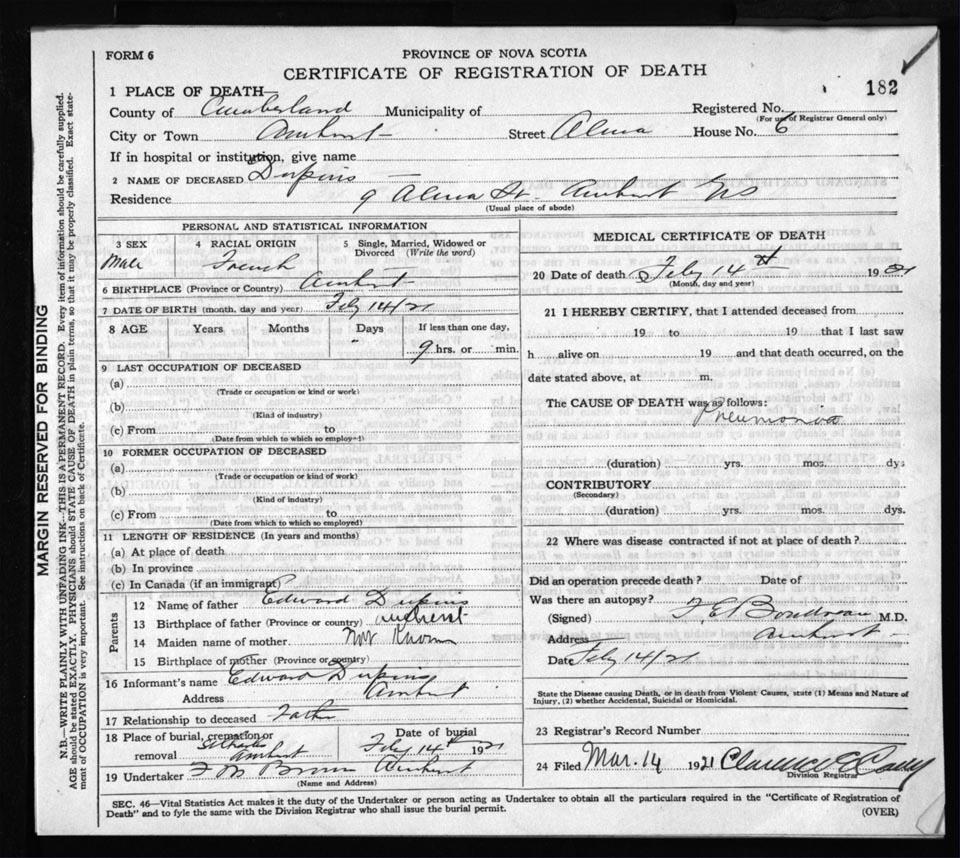 FORM 6
PROVINCE OF NOVA SCOTIA
CERTIFICATE OF REGISTRATION OF DEATH
182
1 PLACE OF DEATH
County of Cumberland Municipality of Registered No.
(For use of Registrar General only)
City or Town Amherst Street Alma House No. 6
If in hospital or institution, give name
2 NAME OF DECEASED
Residence 9 Alma St. Amherst NS
(Usual place of abode)
PERSONAL AND STATISTICAL INFORMATION
3 SEX 4 RACIAL ORIGIN 5 Single, Married, Widowed or Divorced (Write the word)
Male French
6 BIRTHPLACE (Province or Country) Amherst
7 DATE OF BIRTH (month, day and year) Feby 14/21
8 AGE Years Months Days If less than one day,
9 hrs. or min.
9 LAST OCCUPATION OF DECEASED
(a)
(Trade or occupation or kind or work)
(b)
(Kind of industry)
(c) From to
(Date from which to which so employed)
10 FORMER OCCUPATION OF DECEASED
(a)
(Trade or occupation or kind or work)
(b)
(Kind of industry)
(c) From to
(Date from which to which so employed)
11 LENGTH OF RESIDENCE (In years and months)
(a) At place of death
(b) In province
(c) In Canada (if an immigrant)
Parents
12 Name of father Edward
13 Birthplace of father (Province or country) Amherst
14 Maiden name of mother. Not Known
15 Birthplace of mother (Province or country)
16 Informant's name Edward
Address Amherst
17 Relationship to deceased Father
18 Place of burial, cremation or removal St Charles Amherst
Date of burial Feby 14th 1921
19 Undertaker F M Brown Amherst
(Name and Address)
MEDICAL CERTIFICATE OF DEATH
20 Date of death Feby 14th 1921
(Month, day and year)
21 I HEREBY CERTIFY, that I attended deceased from
19 to 19 that I last saw
h alive on 19 and that death occurred, on the
date stated above, at m.
The CAUSE OF DEATH was as follows:
Pneumonia
(duration) yrs. mos. dys
CONTRIBUTORY
(Secondary)
(duration) yrs. mos. dys.
22 Where was disease contracted if not at place of death?
Did an operation precede death? Date of
Was there an autopsy?
(Signed) F. E. Boudreau M.D.
Address Amherst
Date Feby 14/21
State the Disease causing Death, or in death from Violent Causes, state (1) Means and Nature of
Injury, (2) whether Accidental, Suicidal or Homicidal.
23 Registrar's Record Number
24 Filed Mar. 14 1921 Clarence
Division Registrar
SEC. 46—Vital Statistics Act makes it the duty of the Undertaker or person acting as Undertaker to obtain all the particulars required in the "Certificate of Registration of
Death" and to fyle the same with the Division Registrar who shall issue the burial permit.
(OVER)
MARGIN RESERVED FOR BINDING
N.B.—WRITE PLAINLY WITH UNFADING INK—THIS IS A PERMANENT RECORD. Every item of information should be carefully supplied.
AGE should be stated EXACTLY. PHYSICIANS should STATE CAUSE OF DEATH in plain terms, so that it may be properly classified. Exact state-
ment of OCCUPATION is very important. See instructions on back of Certificate.